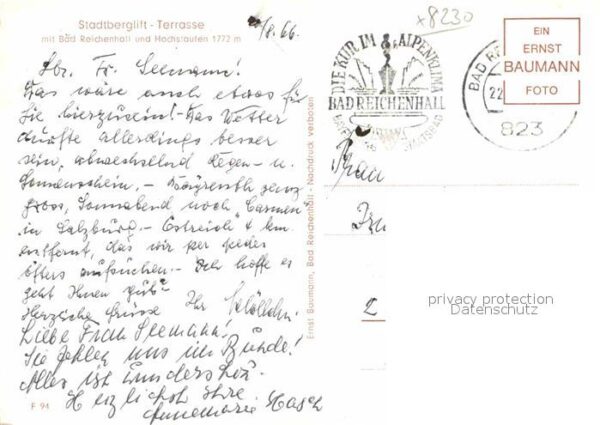 Stadtberglift - Terrasse
mit Bad Reichenhall und Hochstaufen 1772 m
/8. 66.
Lbr. Fr. Seemann!
Das wäre auch etwas für
Sie hierzusein! - Das Wetter
dürfte allerdings besser
sein, abwechselnd Regen- u.
Sonnenschein. -
gross, Sonnabend noch "Carmen"
in Salzburg. - Östreich 4 km
entfernt, das wir per pedes
öfters aufsuchen. - Ich hoffe es
geht Ihnen gut?
Herzliche Grüsse Ihr
Liebe Frau Seemann!
Sie fehlen uns im Bunde!
Alles ist wunderschön.
Herzlichst Ihre
Annemarie
F 94
Ernst Baumann, Bad Reichenhall - Nachdruck verboten
x8230
DIE KUR IM ALPENKLIMA
BAD REICHENHALL
BAYER. STAATSBAD
BAD RE
22.
823
EIN
ERNST
BAUMANN
FOTO
Frau
2
privacy protection
Datenschutz